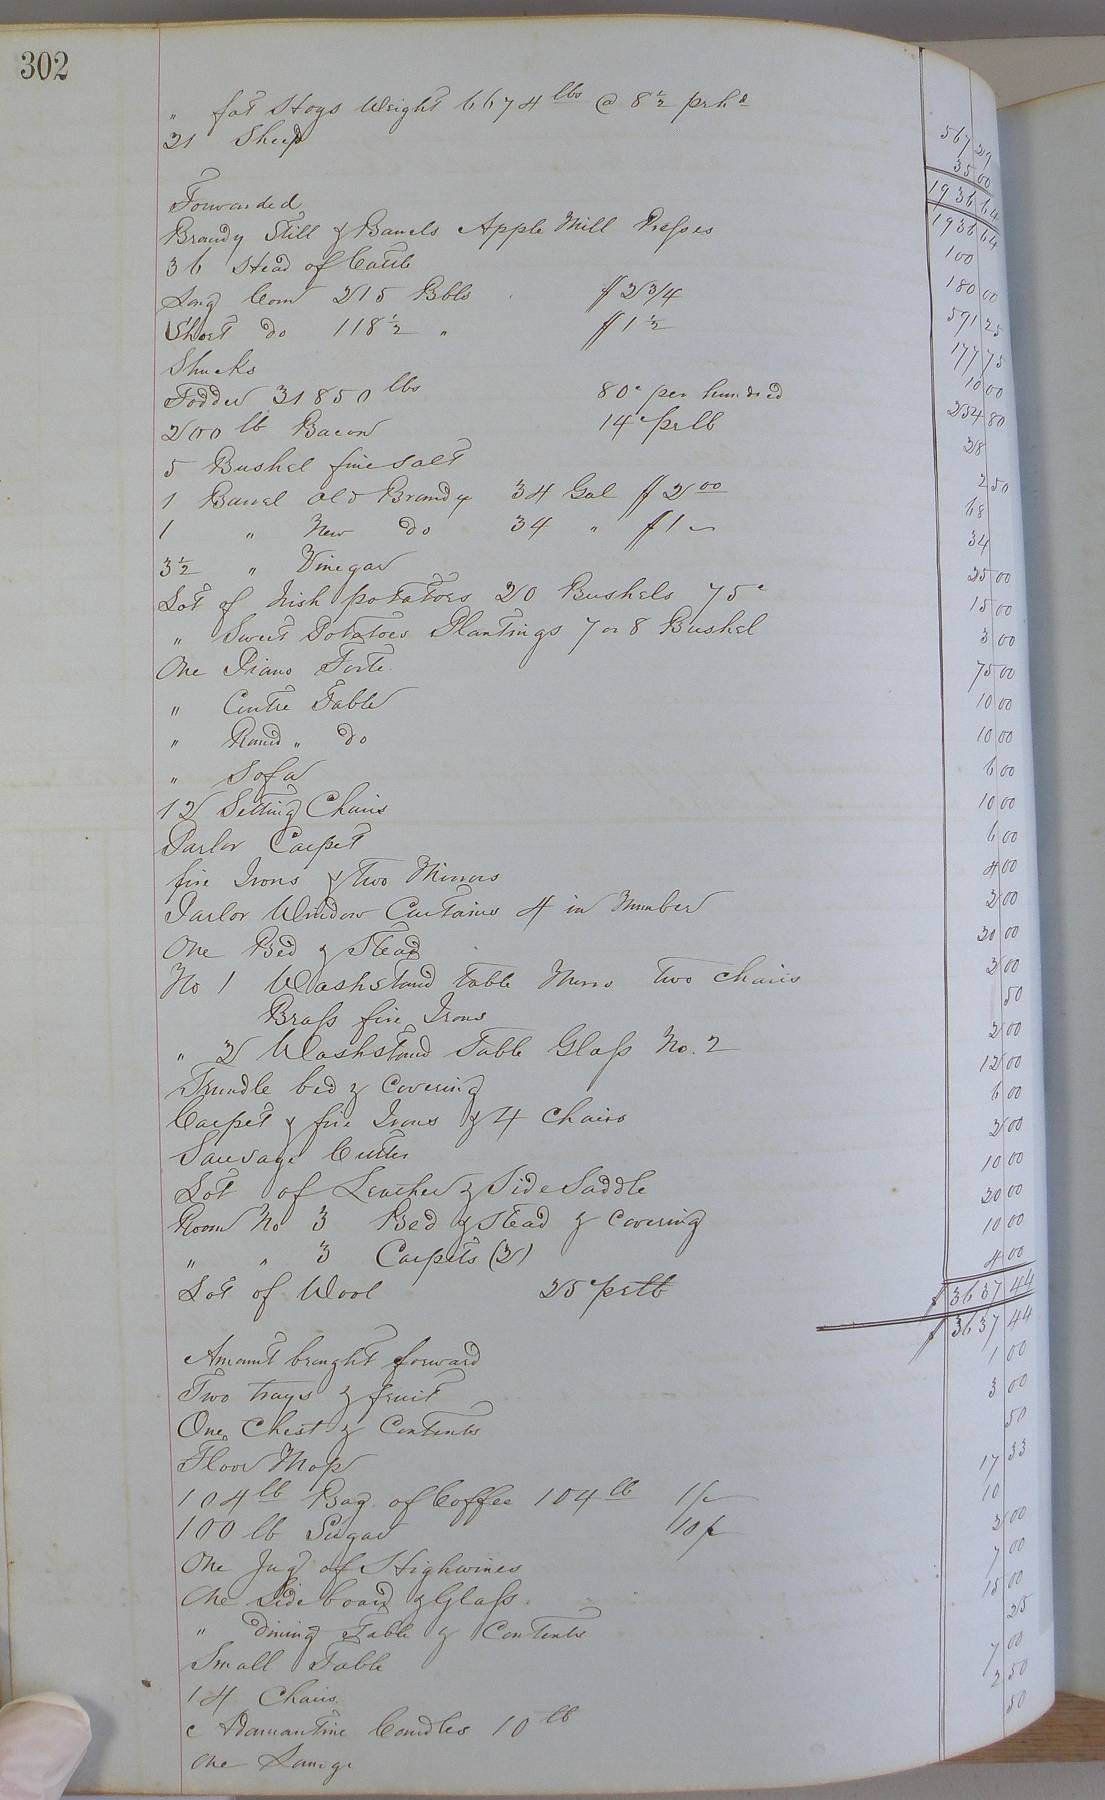 302
" fat Hogs Weight 6674 lbs @ 8½ prhd 567 29
21 Sheep 35 00
1936 64
Forwarded 1936 64
Brandy Still & Barrels Apple Mill Presses 100
36 Head of Cattle 180 00
Long Corn 215 Bbls $2 3/4 591 25
Short do 118½ " $1½ 177 75
Shucks 10 00
Fodder 31850 lbs 80c per hundred 254 80
200 lb Bacon 14c prlb 28
5 Bushel fine salt 2 50
1 Barrel Old Brandy 34 Gal $2 00 68
1 " New do 34 " $1 34
3½ " Vinegar 35 00
Lot of Irish potatoes 20 Bushels 75c 15 00
" Sweet Potatoes Plantings 7 or 8 Bushel 3 00
One Piano Forte 75 00
" Centre Table 10 00
" Round " do 10 00
" Sofa 6 00
12 Setting Chairs 10 00
Parlor Carpet 6 00
fire Irons & Two Mirrors 4 00
Parlor Window Curtains 4 in Number 2 00
One Bed & Stead 30 00
No 1 Washstand table Mirro two chairs 3 00
Brass fire Irons 50
" 2 Washstand Table Glass No. 2 2 00
Trundle bed & covering 12 00
Carpet & fire Irons & 4 chairs 6 00
Sausage Cutter 2 00
Lot of Leather & Side Saddle 10 00
Room No 3 Bed & Stead & covering 20 00
" " 3 Carpets (2) 10 00
Lot of Wool 25c prlb 4 00
$ 3637 44
Amount brought forward $ 3637 44
Two trays & fruit 1 00
One Chest & Contents 3 00
Floor Mop 50
104 lb Bag of Coffee 104 lb 1/ 17 33
100 lb Sugar 10 10
One Jug of Highwines 2 00
One Side board & Glass 7 00
" dining Table & Contents 15 00
Small Table 25
14 Chairs 7 00
Adamantine Candles 10 lb 2 50
One 50